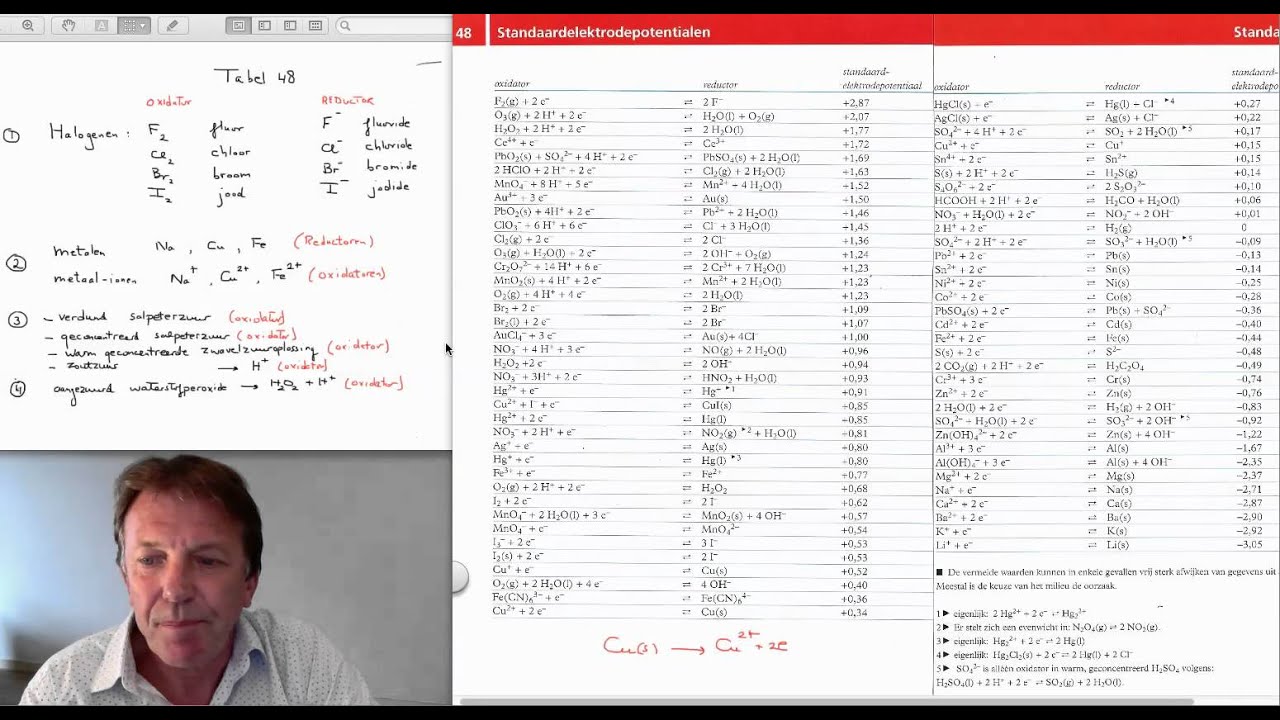 Tabel 48
OXIDATOR REDUCTOR
① Halogenen : F₂ fluor F⁻ fluoride
Cl₂ chloor Cl⁻ chloride
Br₂ broom Br⁻ bromide
I₂ jood I⁻ jodide
② metalen Na , Cu , Fe (Reductoren)
metaal-ionen Na⁺ , Cu²⁺ , Fe²⁺ (oxidatoren)
③ - verdund salpeterzuur (oxidator)
- geconcentreerd salpeterzuur (oxidator)
- warm geconcentreerde zwavelzuuroplossing (oxidator)
- zoutzuur → H⁺ (oxidator)
④ aangezuurd waterstofperoxide → H₂O₂ + H⁺ (oxidator)
48 Standaardelektrodepotentialen
oxidator reductor standaard-elektrodepotentiaal
F₂(g) + 2 e⁻ ⇌ 2 F⁻ +2,87
O₃(g) + 2 H⁺ + 2 e⁻ ⇌ H₂O(l) + O₂(g) +2,07
H₂O₂ + 2 H⁺ + 2 e⁻ ⇌ 2 H₂O(l) +1,77
Ce⁴⁺ + e⁻ ⇌ Ce³⁺ +1,72
PbO₂(s) + SO₄²⁻ + 4 H⁺ + 2 e⁻ ⇌ PbSO₄(s) + 2 H₂O(l) +1,69
2 HClO + 2 H⁺ + 2 e⁻ ⇌ Cl₂(g) + 2 H₂O(l) +1,63
MnO₄⁻ + 8 H⁺ + 5 e⁻ ⇌ Mn²⁺ + 4 H₂O(l) +1,52
Au³⁺ + 3 e⁻ ⇌ Au(s) +1,50
PbO₂(s) + 4H⁺ + 2 e⁻ ⇌ Pb²⁺ + 2 H₂O(l) +1,46
ClO₃⁻ + 6 H⁺ + 6 e⁻ ⇌ Cl⁻ + 3 H₂O(l) +1,45
Cl₂(g) + 2 e⁻ ⇌ 2 Cl⁻ +1,36
O₃(g) + H₂O(l) + 2 e⁻ ⇌ 2 OH⁻ + O₂(g) +1,24
Cr₂O₇²⁻ + 14 H⁺ + 6 e⁻ ⇌ 2 Cr³⁺ + 7 H₂O(l) +1,23
MnO₂(s) + 4 H⁺ + 2 e⁻ ⇌ Mn²⁺ + 2 H₂O(l) +1,23
O₂(g) + 4 H⁺ + 4 e⁻ ⇌ 2 H₂O(l) +1,23
Br₂ + 2 e⁻ ⇌ 2 Br⁻ +1,09
Br₂(l) + 2 e⁻ ⇌ 2 Br⁻ +1,07
AuCl₄⁻ + 3 e⁻ ⇌ Au(s) + 4Cl⁻ +1,00
NO₃⁻ + 4 H⁺ + 3 e⁻ ⇌ NO(g) + 2 H₂O(l) +0,96
H₂O₂ + 2 e⁻ ⇌ 2 OH⁻ +0,94
NO₃⁻ + 3H⁺ + 2 e⁻ ⇌ HNO₂ + H₂O(l) +0,93
Hg²⁺ + e⁻ ⇌ Hg⁺ ▸1 +0,91
Cu²⁺ + I⁻ + e⁻ ⇌ CuI(s) +0,85
Hg²⁺ + 2 e⁻ ⇌ Hg(l) +0,85
NO₃⁻ + 2 H⁺ + e⁻ ⇌ NO₂(g) ▸2 + H₂O(l) +0,81
Ag⁺ + e⁻ ⇌ Ag(s) +0,80
Hg⁺ + e⁻ ⇌ Hg(l) ▸3 +0,80
Fe³⁺ + e⁻ ⇌ Fe²⁺ +0,77
O₂(g) + 2 H⁺ + 2 e⁻ ⇌ H₂O₂ +0,68
I₂ + 2 e⁻ ⇌ 2 I⁻ +0,62
MnO₄⁻ + 2 H₂O(l) + 3 e⁻ ⇌ MnO₂(s) + 4 OH⁻ +0,57
MnO₄⁻ + e⁻ ⇌ MnO₄²⁻ +0,54
I₃⁻ + 2 e⁻ ⇌ 3 I⁻ +0,53
I₂(s) + 2 e⁻ ⇌ 2 I⁻ +0,53
Cu⁺ + e⁻ ⇌ Cu(s) +0,52
O₂(g) + 2 H₂O(l) + 4 e⁻ ⇌ 4 OH⁻ +0,40
Fe(CN)₆³⁻ + e⁻ ⇌ Fe(CN)₆⁴⁻ +0,36
Cu²⁺ + 2 e⁻ ⇌ Cu(s) +0,34
Cu(s) → Cu²⁺ + 2e
Standa
oxidator reductor standaard-elektrodepo
HgCl(s) + e⁻ ⇌ Hg(l) + Cl⁻ ▸4 +0,27
AgCl(s) + e⁻ ⇌ Ag(s) + Cl⁻ +0,22
SO₄²⁻ + 4 H⁺ + 2 e⁻ ⇌ SO₂ + 2 H₂O(l) ▸5 +0,17
Cu²⁺ + e⁻ ⇌ Cu⁺ +0,15
Sn⁴⁺ + 2 e⁻ ⇌ Sn²⁺ +0,15
S(s) + 2 H⁺ + 2 e⁻ ⇌ H₂S(g) +0,14
S₄O₆²⁻ + 2 e⁻ ⇌ 2 S₂O₃²⁻ +0,10
HCOOH + 2 H⁺ + 2 e⁻ ⇌ H₂CO + H₂O(l) +0,06
NO₃⁻ + H₂O(l) + 2 e⁻ ⇌ NO₂⁻ + 2 OH⁻ +0,01
2 H⁺ + 2 e⁻ ⇌ H₂(g) 0
SO₄²⁻ + 2 H⁺ + 2 e⁻ ⇌ SO₃²⁻ + H₂O(l) ▸5 −0,09
Pb²⁺ + 2 e⁻ ⇌ Pb(s) −0,13
Sn²⁺ + 2 e⁻ ⇌ Sn(s) −0,14
Ni²⁺ + 2 e⁻ ⇌ Ni(s) −0,25
Co²⁺ + 2 e⁻ ⇌ Co(s) −0,28
PbSO₄(s) + 2 e⁻ ⇌ Pb(s) + SO₄²⁻ −0,36
Cd²⁺ + 2 e⁻ ⇌ Cd(s) −0,40
Fe²⁺ + 2 e⁻ ⇌ Fe(s) −0,44
S(s) + 2 e⁻ ⇌ S²⁻ −0,48
2 CO₂(g) + 2 H⁺ + 2 e⁻ ⇌ H₂C₂O₄ −0,49
Cr³⁺ + 3 e⁻ ⇌ Cr(s) −0,74
Zn²⁺ + 2 e⁻ ⇌ Zn(s) −0,76
2 H₂O(l) + 2 e⁻ ⇌ H₂(g) + 2 OH⁻ −0,83
SO₄²⁻ + H₂O(l) + 2 e⁻ ⇌ SO₃²⁻ + 2 OH⁻ ▸5 −0,92
Zn(OH)₄²⁻ + 2 e⁻ ⇌ Zn(s) + 4 OH⁻ −1,22
Al³⁺ + 3 e⁻ ⇌ Al(s) −1,67
Al(OH)₄⁻ + 3 e⁻ ⇌ Al(s) + 4 OH⁻ −2,35
Mg²⁺ + 2 e⁻ ⇌ Mg(s) −2,37
Na⁺ + e⁻ ⇌ Na(s) −2,71
Ca²⁺ + 2 e⁻ ⇌ Ca(s) −2,87
Ba²⁺ + 2 e⁻ ⇌ Ba(s) −2,90
K⁺ + e⁻ ⇌ K(s) −2,92
Li⁺ + e⁻ ⇌ Li(s) −3,05
■ De vermelde waarden kunnen in enkele gevallen vrij sterk afwijken van gegevens uit
Meestal is de keuze van het milieu de oorzaak.
1 ▸ eigenlijk: 2 Hg²⁺ + 2 e⁻ ⇌ Hg₂²⁺
2 ▸ Er stelt zich een evenwicht in: N₂O₄(g) ⇌ 2 NO₂(g).
3 ▸ eigenlijk: Hg₂²⁺ + 2 e⁻ ⇌ 2 Hg(l)
4 ▸ eigenlijk: Hg₂Cl₂(s) + 2 e⁻ ⇌ 2 Hg(l) + 2 Cl⁻
5 ▸ SO₄²⁻ is alléén oxidator in warm, geconcentreerd H₂SO₄ volgens:
H₂SO₄(l) + 2 H⁺ + 2 e⁻ ⇌ SO₂(g) + 2 H₂O(l).